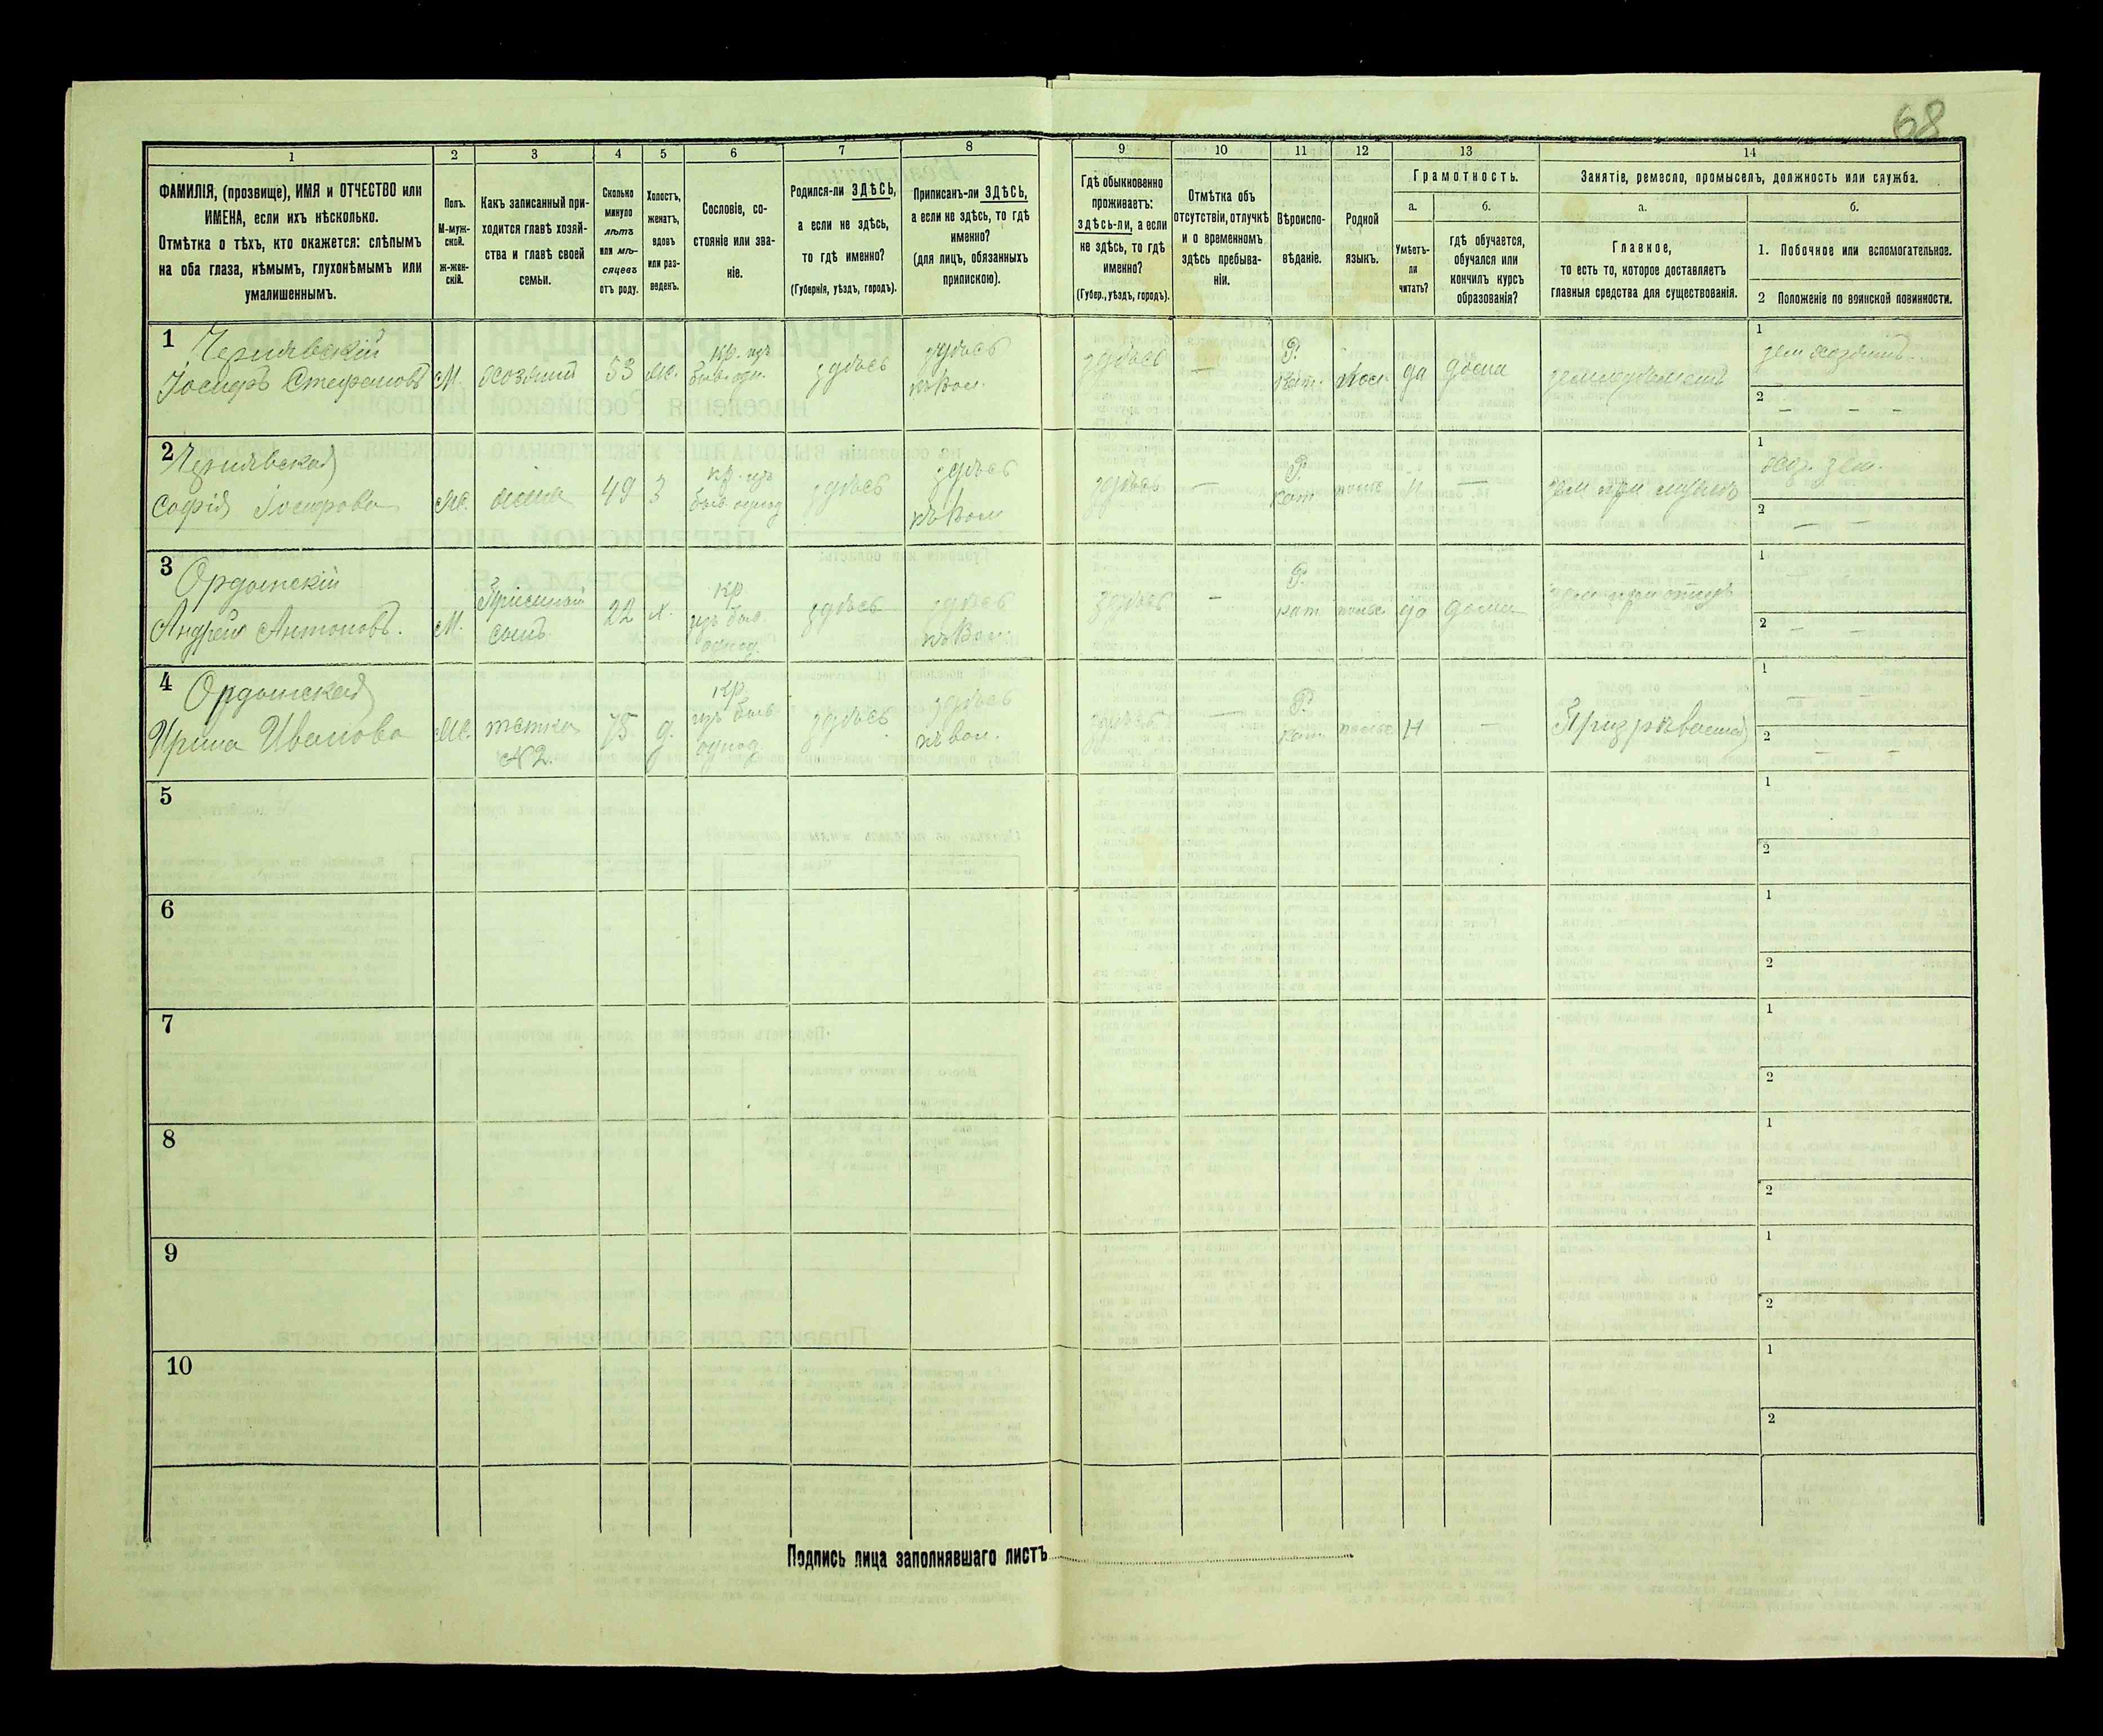 68
1 2 3 4 5 6 7 8 9 10 11 12 13 14
ФАМИЛІЯ, (прозвище), ИМЯ и ОТЧЕСТВО или
ИМЕНА, если ихъ нѣсколько.
Отмѣтка о тѣхъ, кто окажется: слѣпымъ
на оба глаза, нѣмымъ, глухонѣмымъ или
умалишеннымъ.
Полъ.
М-муж-
ской.
Ж-жен-
скій.
Какъ записанный при-
ходится главѣ хозяй-
ства и главѣ своей
семьи.
Сколько
минуло
лѣтъ
или мѣ-
сяцевъ
отъ роду.
Холостъ,
женатъ,
вдовъ
или раз-
веденъ.
Сословіе, со-
стояніе или зва-
ніе.
Родился-ли ЗДѢСЬ,
а если не здѣсь,
то гдѣ именно?
(Губернія, уѣздъ, городъ).
Приписанъ-ли ЗДѢСЬ,
а если не здѣсь, то гдѣ
именно?
(для лицъ, обязанныхъ
припискою).
Гдѣ обыкновенно
проживаетъ:
здѣсь-ли, а если
не здѣсь, то гдѣ
именно?
(Губер., уѣздъ, городъ).
Отмѣтка объ
отсутствіи, отлучкѣ
и о временномъ
здѣсь пребыва-
ніи.
Вѣроиспо-
вѣданіе.
Родной
языкъ.
Грамотность.
а.
Умѣетъ-
ли
читать?
б.
гдѣ обучается,
обучался или
кончилъ курсъ
образованія?
Занятіе, ремесло, промыселъ, должность или служба.
а.
Главное,
то есть то, которое доставляетъ
главныя средства для существованія.
б.
1. Побочное или вспомогательное.
2 Положеніе по воинской повинности.
1 Чернявскій
Іосифъ Стефановъ
М. хозяинъ 53 ж. кр. изъ
быв. одн.
здѣсь
здѣсь
къ вол.
здѣсь — Р.
кат. да дома
1
2 — —
2 Чернявская
Софія Іосифова
Ж. жена 49 з кр. изъ
быв. однод
здѣсь
здѣсь
къ вол
здѣсь — Р.
кат польс н — зем при мужѣ
1 хоз. зем.
2 — —
3 Ордынскій
Андрей Антоновъ.
М. Пріемный
сынъ
22 х. кр
изъ быв.
однод.
здѣсь
здѣсь
къ вол
здѣсь — Р.
кат польс да дома
1 —
2 — —
4 Ордынская
Ирина Иванова
Ж. тетка
№ 2.
75 д. кр.
изъ быв
однод
здѣсь
здѣсь
къ вол.
здѣсь — Р.
кат. польс н — Призрѣваемая
1 — —
2 — —
5
1
2
6
1
2
7
1
2
8
1
2
9
1
2
10
1
2
Подпись лица заполнявшаго листъ